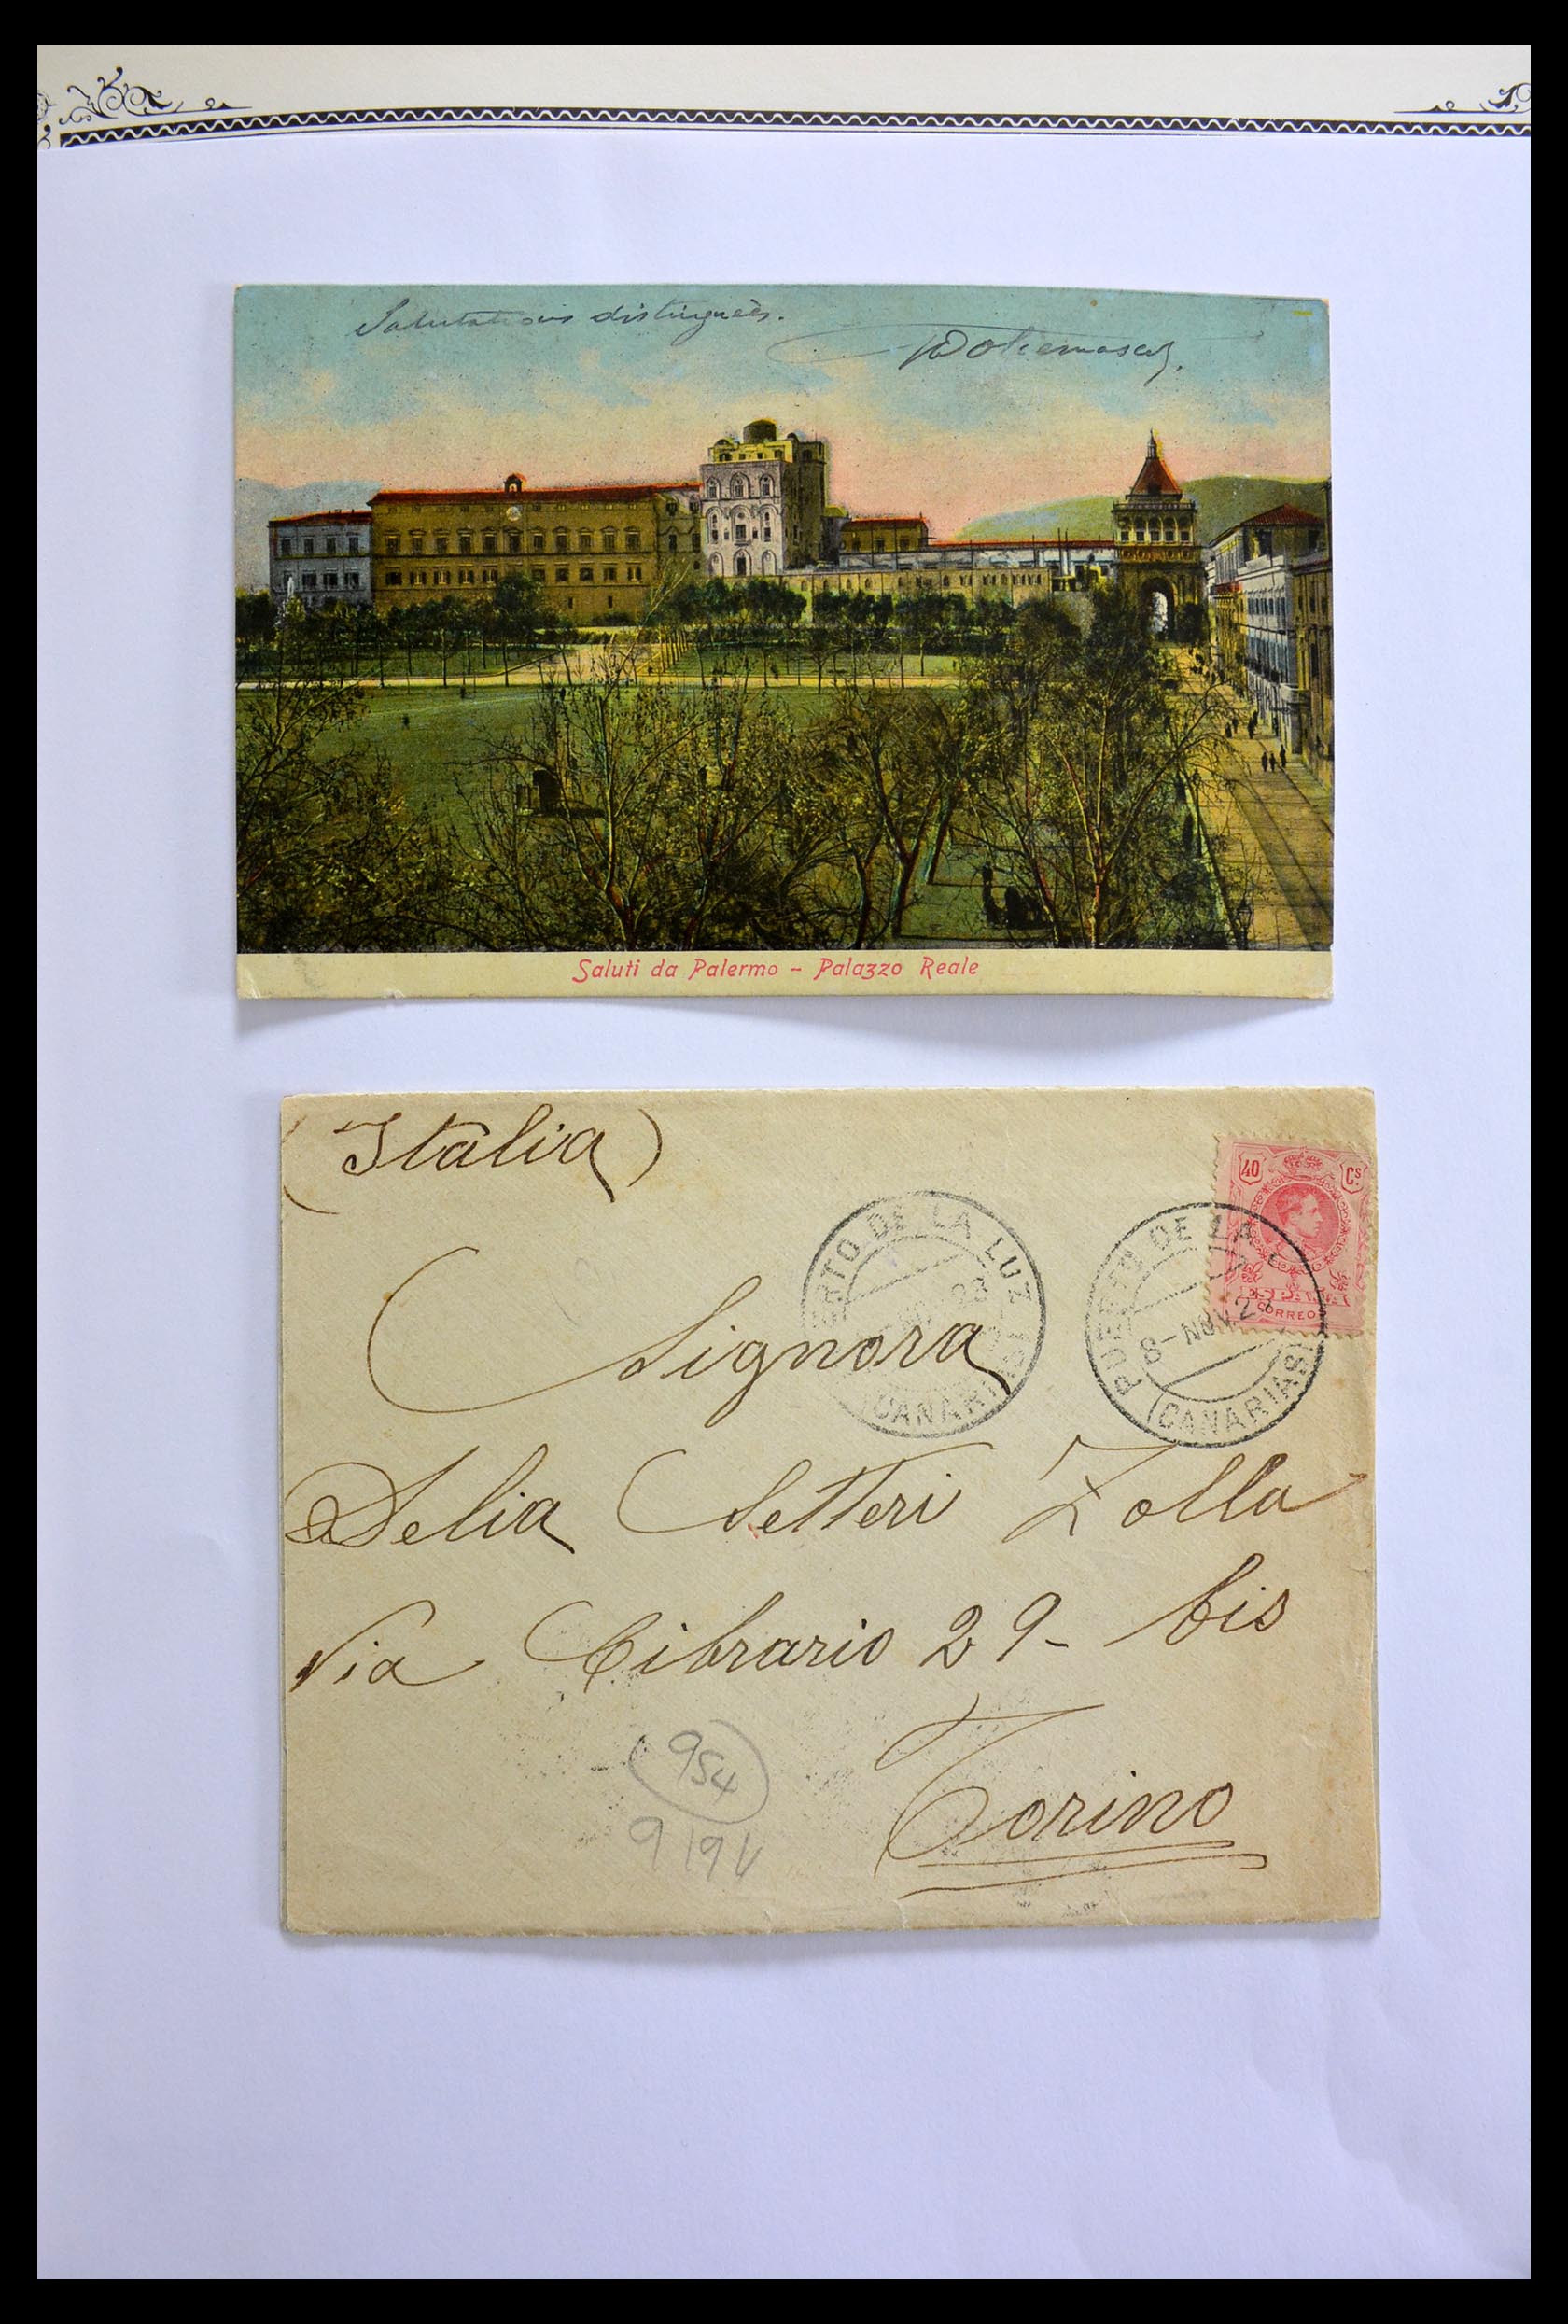 Salutations distinguées.
Saluti da Palermo – Palazzo Reale
(Italia)
40 Cs
CORREOS
PUERTO DE LA
8-NOV 23
(CANARIAS)
RTO DE LA LUZ
23
(CANARI
Signora
Delia Setteri Zolla
Via Cibrario 29- bis
Torino
954
9191